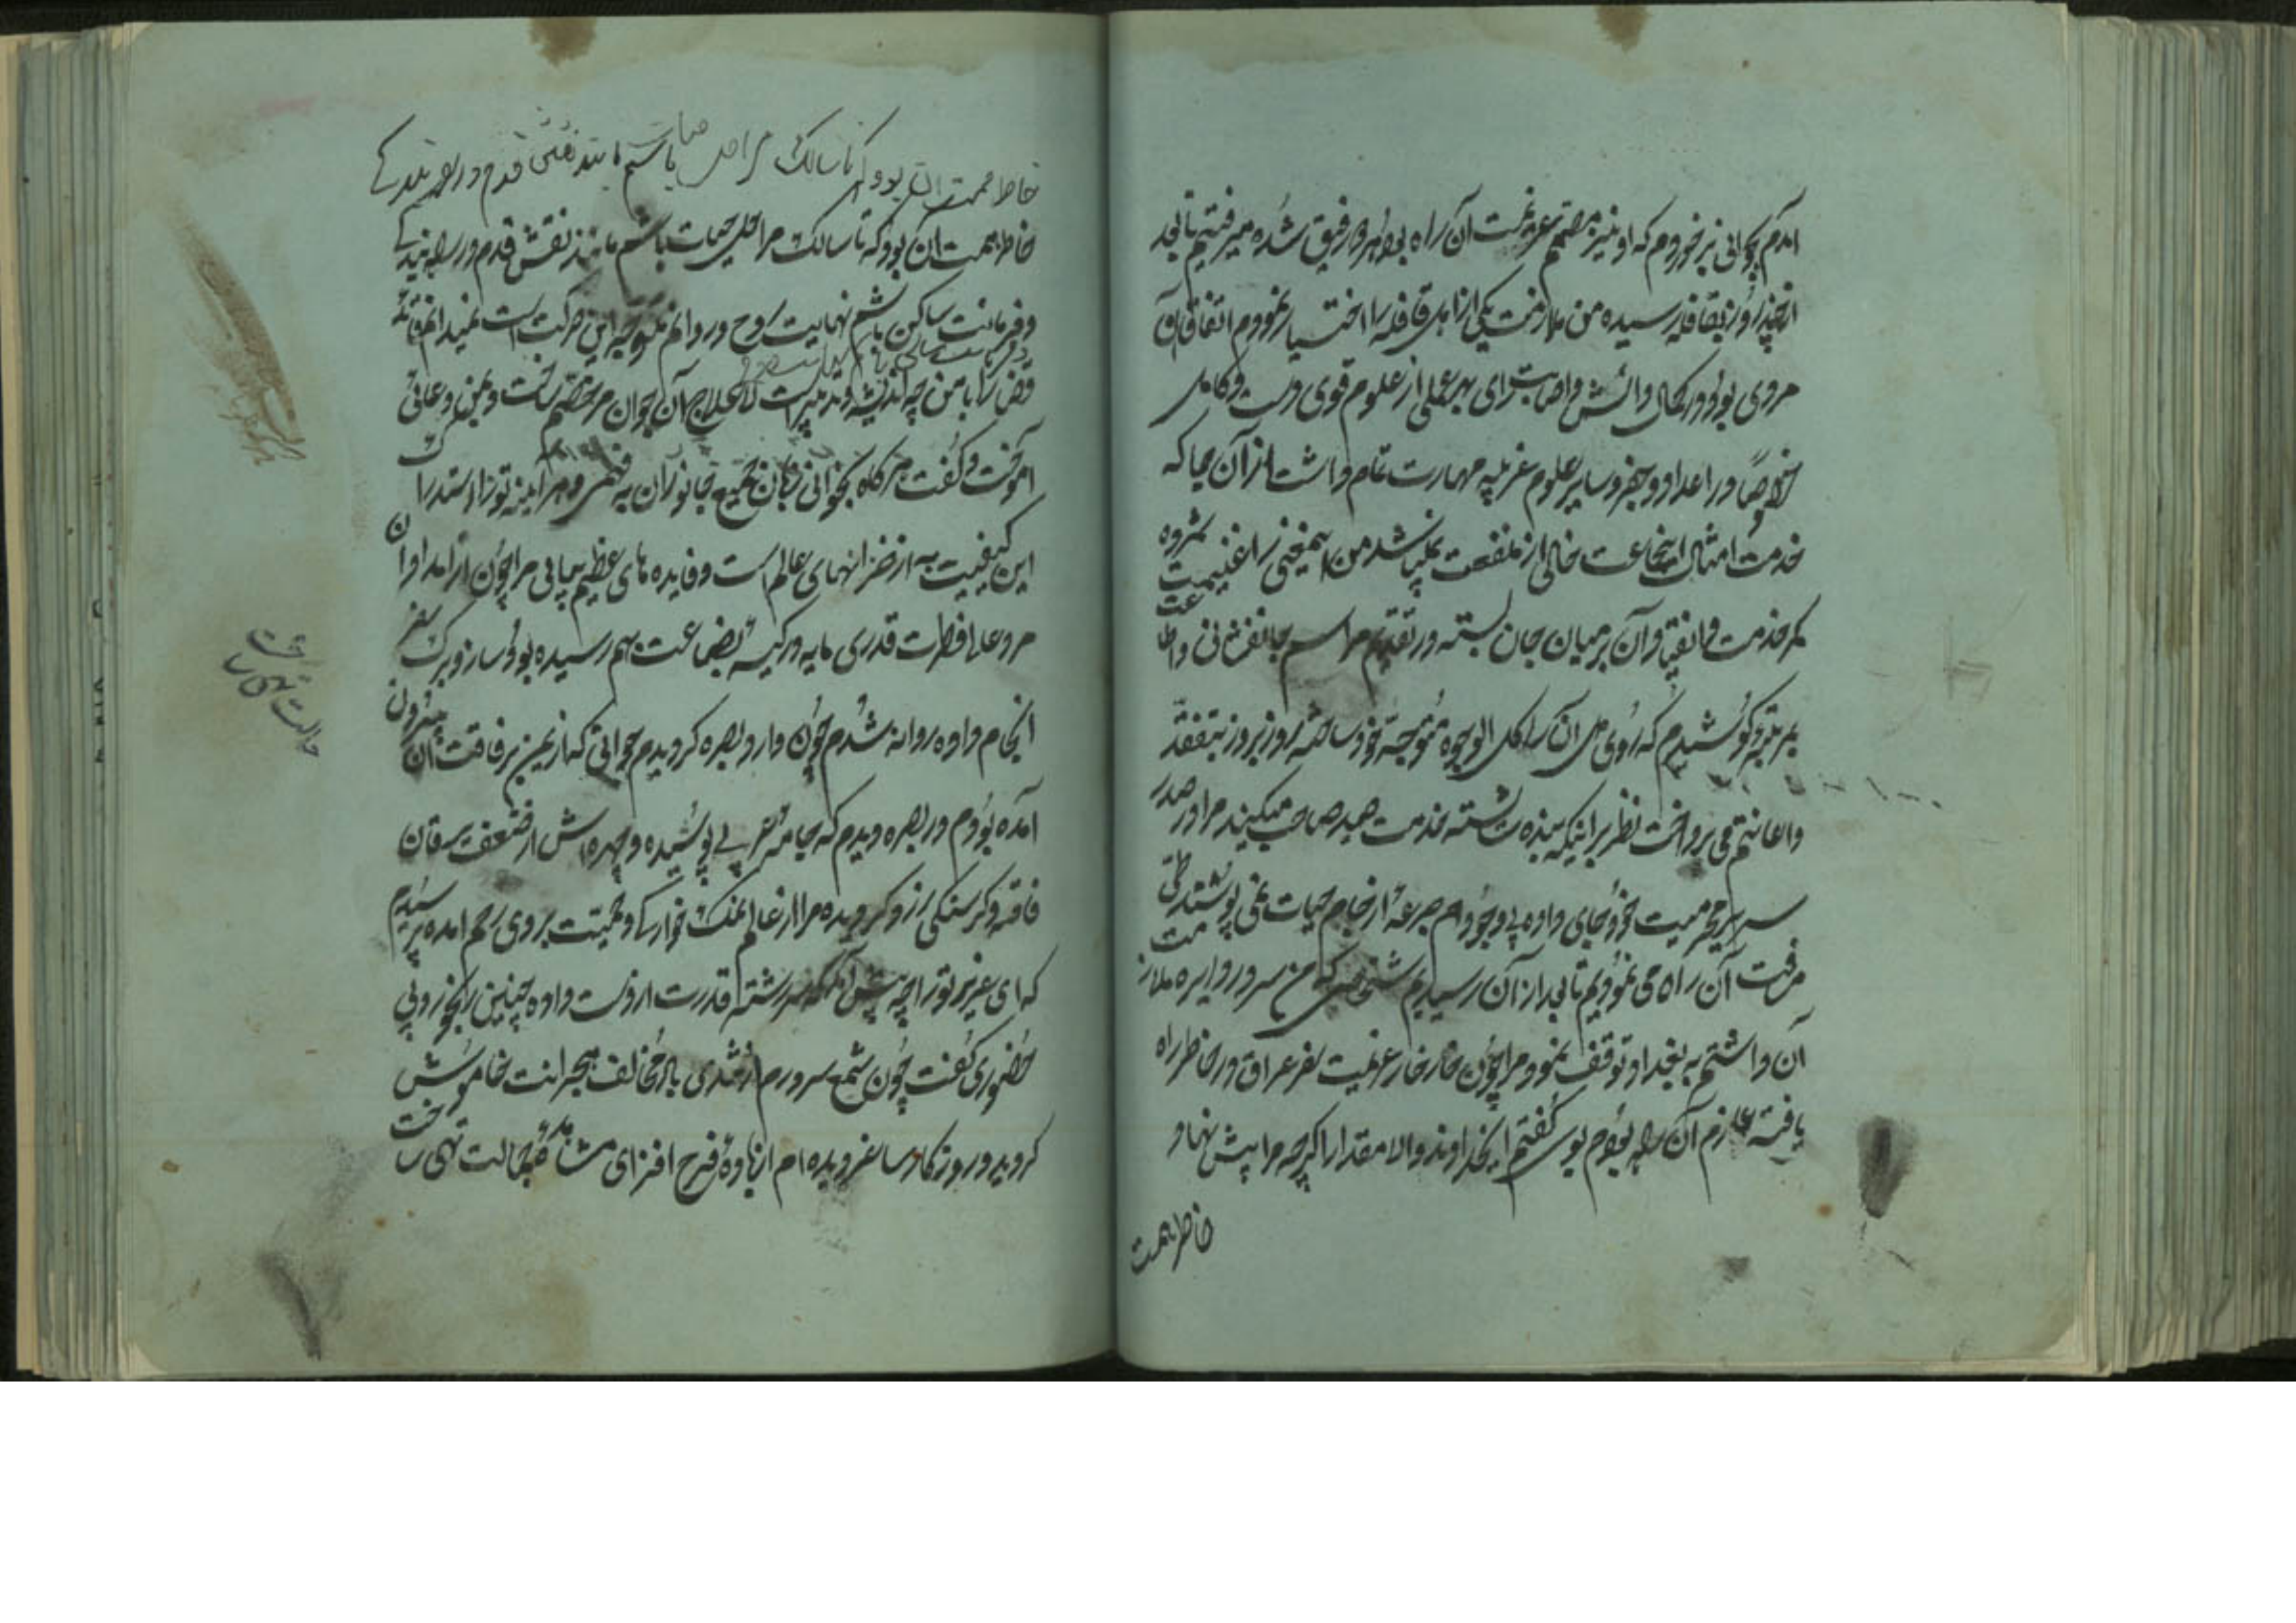 آمدم بجوانی برخوردم که او نیز مصمم عزیمت آن راه بود همراه و رفیق شده میرفتیم تا بعد
از چند روز بقافله رسیده من ملازمت یکی از اهل قافله را اختیار نمودم اتفاقا او
مردی بود در کمال دانش و اصابت رای بهر علمی از علوم قوی دست و کامل
خصوصا در اعداد و جفر و سایر علوم غریبه مهارت تمام داشت از آن جا که
خدمت امثال این جماعت خالی از منفعت نمیباشد من اینمعنی را غنیمت شمرده
کمر خدمت و انقیاد آن بر میان جان بسته در تقدیم مراسم جانفشانی و اطاعت
بمرتبه کوشیدم که روی دل آن را بکل الوجوه متوجه خود ساخته روز بروز بتفقد
و اعانتم می پرداخت نظر بر اینکه بنده شایسته خدمت صید صاحب میکند مرا در صدر
سریر محرمیت خود جای داده بی وجودم جرعه از جام حیات نمی نوشید طی
مرفت آن راه می نمودیم تا بعد از آن رسیدیم شخصی که من سر در دایره ملازمت
آن داشتم به بغداد توقف نمود و مرا چون خار خار عزیمت سفر عراق در خاطر راه
یافته عازم آن راه بودم بوی گفتم ایخداوند والا مقدار اگر چه مرا پیش نهاد
خاطر همت
خاطر همت آن بود که تا سالک مراحل حیات باشم مانند نقش قدم در راه بندگی
خاطر همت آن بود که تا سالک مراحل حیات باشم مانند نقش قدم در راه بندگی
و فرمانت ساکن باشم نهایت روح در روانم متوجه این حرکت است نمیدانم
قضا را با من چه اندیشه و تدبیر است لاعلاج آن جوان مرخصم ساخت و بمن دعائی
آموخت و گفت هر گاه بخوانی زبان جمیع جانوران به فهمی و هر آینه تو را
این کیفیت به از خزانهای عالم است و فایده های عظیم بیابی مرا چون از امداد آن
مرد عالی فطرت قدری مایه در کیسه بضاعت بهم رسیده بود ساز و برگ سفر
انجام داده روانه شدم چون وارد بصره گردیدم جوانی که از یمن برفاقت آن بیرون
آمده بودم در بصره دیدم که جامه عربی پوشیده و چهره اش از ضعف یرقان
فاقه و گرسنگی زرد گردیده مرا از عالم نمک خوارگی و حمیت بر وی رحم آمده پرسیدم
که ای عزیز تو را چه پیش آمد که سررشته قدرت از دست داده چنین رنجور و بی
حضوری گفت چون شمع سرورم از تندی باد مخالف هجرانت خاموش
گردید در روزگار ساغر دیده ام از باده فرح افزای مشاهده جمالت تهی ساخت
حالت تهی ساخت